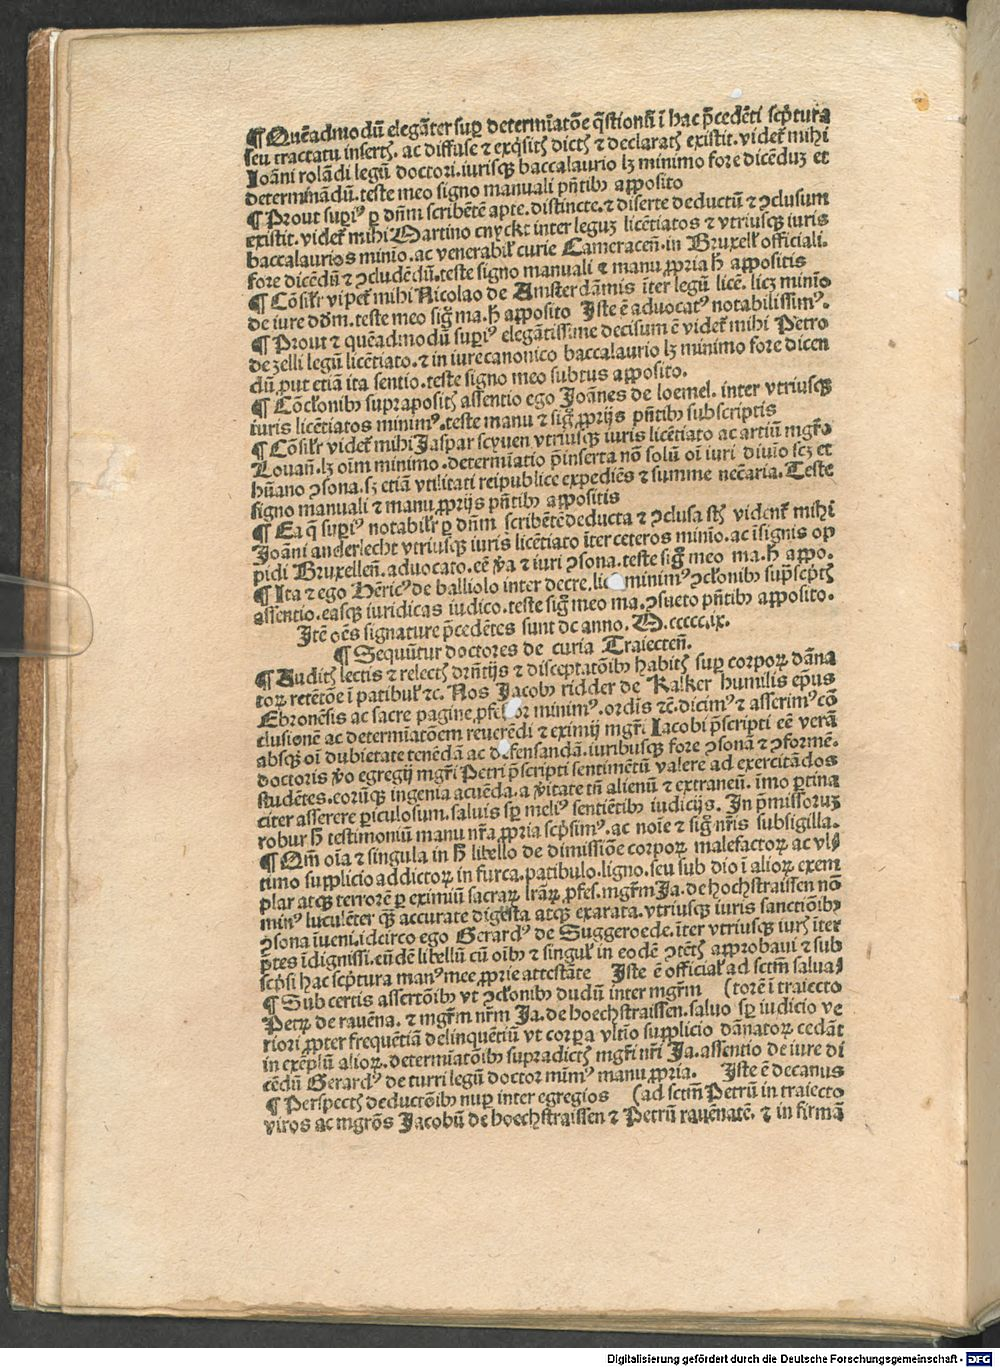 ¶ Quēadmodū elegāter sup determīatōe q̄stionū ī hac p̄cedēti scptura
seu tractatu insertꝭ. ac diffuse ⁊ exq̄sitꝭ dictꝭ ⁊ declaratꝭ existit. videt᷑ mihi
Joāni rolādi legū doctori. iurisqꝫ baccalaurio lꝫ minimo fore dicēduꝫ et
determinādū. teste meo signo manuali pn̄tibꝰ apposito
¶ Prout supiꝰ p dn̄m scribētē apte. distincte. ⁊ diserte deductū ⁊ ꝯclusum
existit. videt᷑ mihi Martino cnyckt inter leguꝫ licētiatos ⁊ vtriusqꝫ iuris
baccalaurios minīo. ac venerabilꝭ curie Cameraceñ. in Bruxelꝉ officiali.
fore dicēdū ⁊ ꝯcludēdū. teste signo manuali ⁊ manu ꝓpria h̄ appositis
¶ Cōsilꝭr vipet᷑ mihi Nicolao de Amsterdāmis īter legū licē. licꝫ minīo
de iure dd̄m. teste meo sig̅ ma. h̄ apposito Iste ē aduocatꝰ notabilissimꝰ.
¶ Prout ⁊ quēadmodū supiꝰ elegātissime decisum ē videt᷑ mihi Petro
de zelli legū licētiato. ⁊ in iure canonico baccalaurio lꝫ minimo fore dicen
dū ꝓut etiā ita sentio. teste signo meo subtus apposito.
¶ Cōclonibꝰ suprapositꝭ assentio ego Joānes de loemel. inter vtriusqꝫ
iuris licētiatos minimꝰ. teste manu ⁊ sig̅ ꝓprijs pn̄tibꝰ subscriptis
¶ Cōsilꝭr videt᷑ mihi Jaspar scyuen vtriusqꝫ iuris licētiato ac artiū mgr̄o
Louañ. lꝫ oīm minimo. determīatio p̄inserta nō solū oī iuri diuīo scꝫ et
hūano ꝯsona. sꝫ etiā vtilitati reipublice expediēs ⁊ summe necr̄aria. Teste
signo manuali ⁊ manu ꝓprijs pn̄tibꝰ appositis
¶ Ea q̄ supiꝰ notabilꝭr p dn̄m scribētē deducta ⁊ ꝯclusa sꝭ vident᷑ mihi
Joāni anderlecht vtriusqꝫ iuris licētiato īter ceteros minīo. ac īsignis op
pidi Bruxelleñ. aduocato. eē v̄a ⁊ iuri ꝯsona. teste sig̅ meo ma. h̄ appo.
¶ Ita ⁊ ego Hēricꝰ de balliolo inter decre. lic minimꝰ ꝯclonibꝰ sup̄scptꝭ
assentio. easqꝫ iuridicas iudico. teste sig̅ meo ma. ꝯsueto pn̄tibꝰ apposito.
Itē oēs signature p̄cedētes sunt de anno. M.ccccc.ix.
¶ Sequūtur doctores de curia Traiecteñ.
¶ Auditꝭ lectis ⁊ relectꝭ drn̄tijs ⁊ disceptatōibꝰ habitꝭ sup corpoꝝ dāna
toꝝ retētōe ī patibulꝭ ⁊c. Nos Jacobꝰ ridder de Kalker humilis ep̄us
Ebronēsis ac sacre pagine ꝓfessor minimꝰ. ordīs ⁊c̄. dicimꝰ ⁊ asserimꝰ cō
clusionē ac determīatōem reuerēdi ⁊ eximij mgr̄i Iacobi p̄scripti eē verā
absqꝫ oī dubietate tenēdā ac defensandā. iuribusqꝫ fore ꝯsonā ⁊ ꝯformē.
doctoris v̄o egregij mgr̄i Petri p̄scripti sentimētū valere ad exercitādos
studētes. eorūqꝫ ingenia acuēda. a v̄itate tn̄ alienū ⁊ extraneū. īmo ptina
citer asserere piculosum. saluis sp meliꝰ sentiētibꝰ iudicijs. In p̄missoruꝫ
robur h̄ testimoniū manu nr̄a ꝓpria scpsimꝰ. ac noīe ⁊ sig̅ nr̄is subsigilla.
¶ Qm̄ oīa ⁊ singula in h̄ libello de dimissiōe corpoꝝ malefactoꝝ ac vl
timo supplicio addictoꝝ in furca. patibulo. ligno. seu sub dio ī alioꝝ exem
plar atqꝫ terrorē p eximiū sacraꝝ lr̄aꝝ ꝓfes. mgr̄m Ja. de hochstraissen nō
minꝰ luculēter qꝫ accurate digesta atqꝫ exarata. vtriusqꝫ iuris sanctiōibꝰ
ꝯsona īueni. idcirco ego Gerardꝰ de Suggeroede. īter vtriusqꝫ iurꝭ īter
p̄tes īdignissi. eūdē libellū cū oībꝰ ⁊ singulꝭ in eodē ꝯtētꝭ approbaui ⁊ sub
scpsi hac scptura manꝰ mee ꝓprie attestāte Iste ē officialꝭ ad sctm̄ salua
¶ Sub certis assertōibꝰ vt ꝯclonibꝰ dudū inter mgr̄m (torē ī traiecto
Petꝝ de rauēna. ⁊ mgr̄m nr̄m Ja. de hoechstraissen. saluo sp iudicio ve
riori ꝓpter frequētiā delinquētiū vt corpa vltīo supplicio dānatoꝝ cedāt
in exēplū alioꝝ. determīatōibꝰ supradictꝭ mgr̄i nr̄i Ja. assentio de iure di
cēdū Gerardꝰ de turri legū doctor mīmꝰ manu ꝓpria. Iste ē decanus
¶ Perspectꝭ deductōibꝰ nup inter egregios (ad sctm̄ Petrū in traiecto
viros ac mgrōs Jacobū de hoechstraissen ⁊ Petrū rauēnatē. ⁊ in firmā
Digitalisierung gefördert durch die Deutsche Forschungsgemeinschaft - DFG